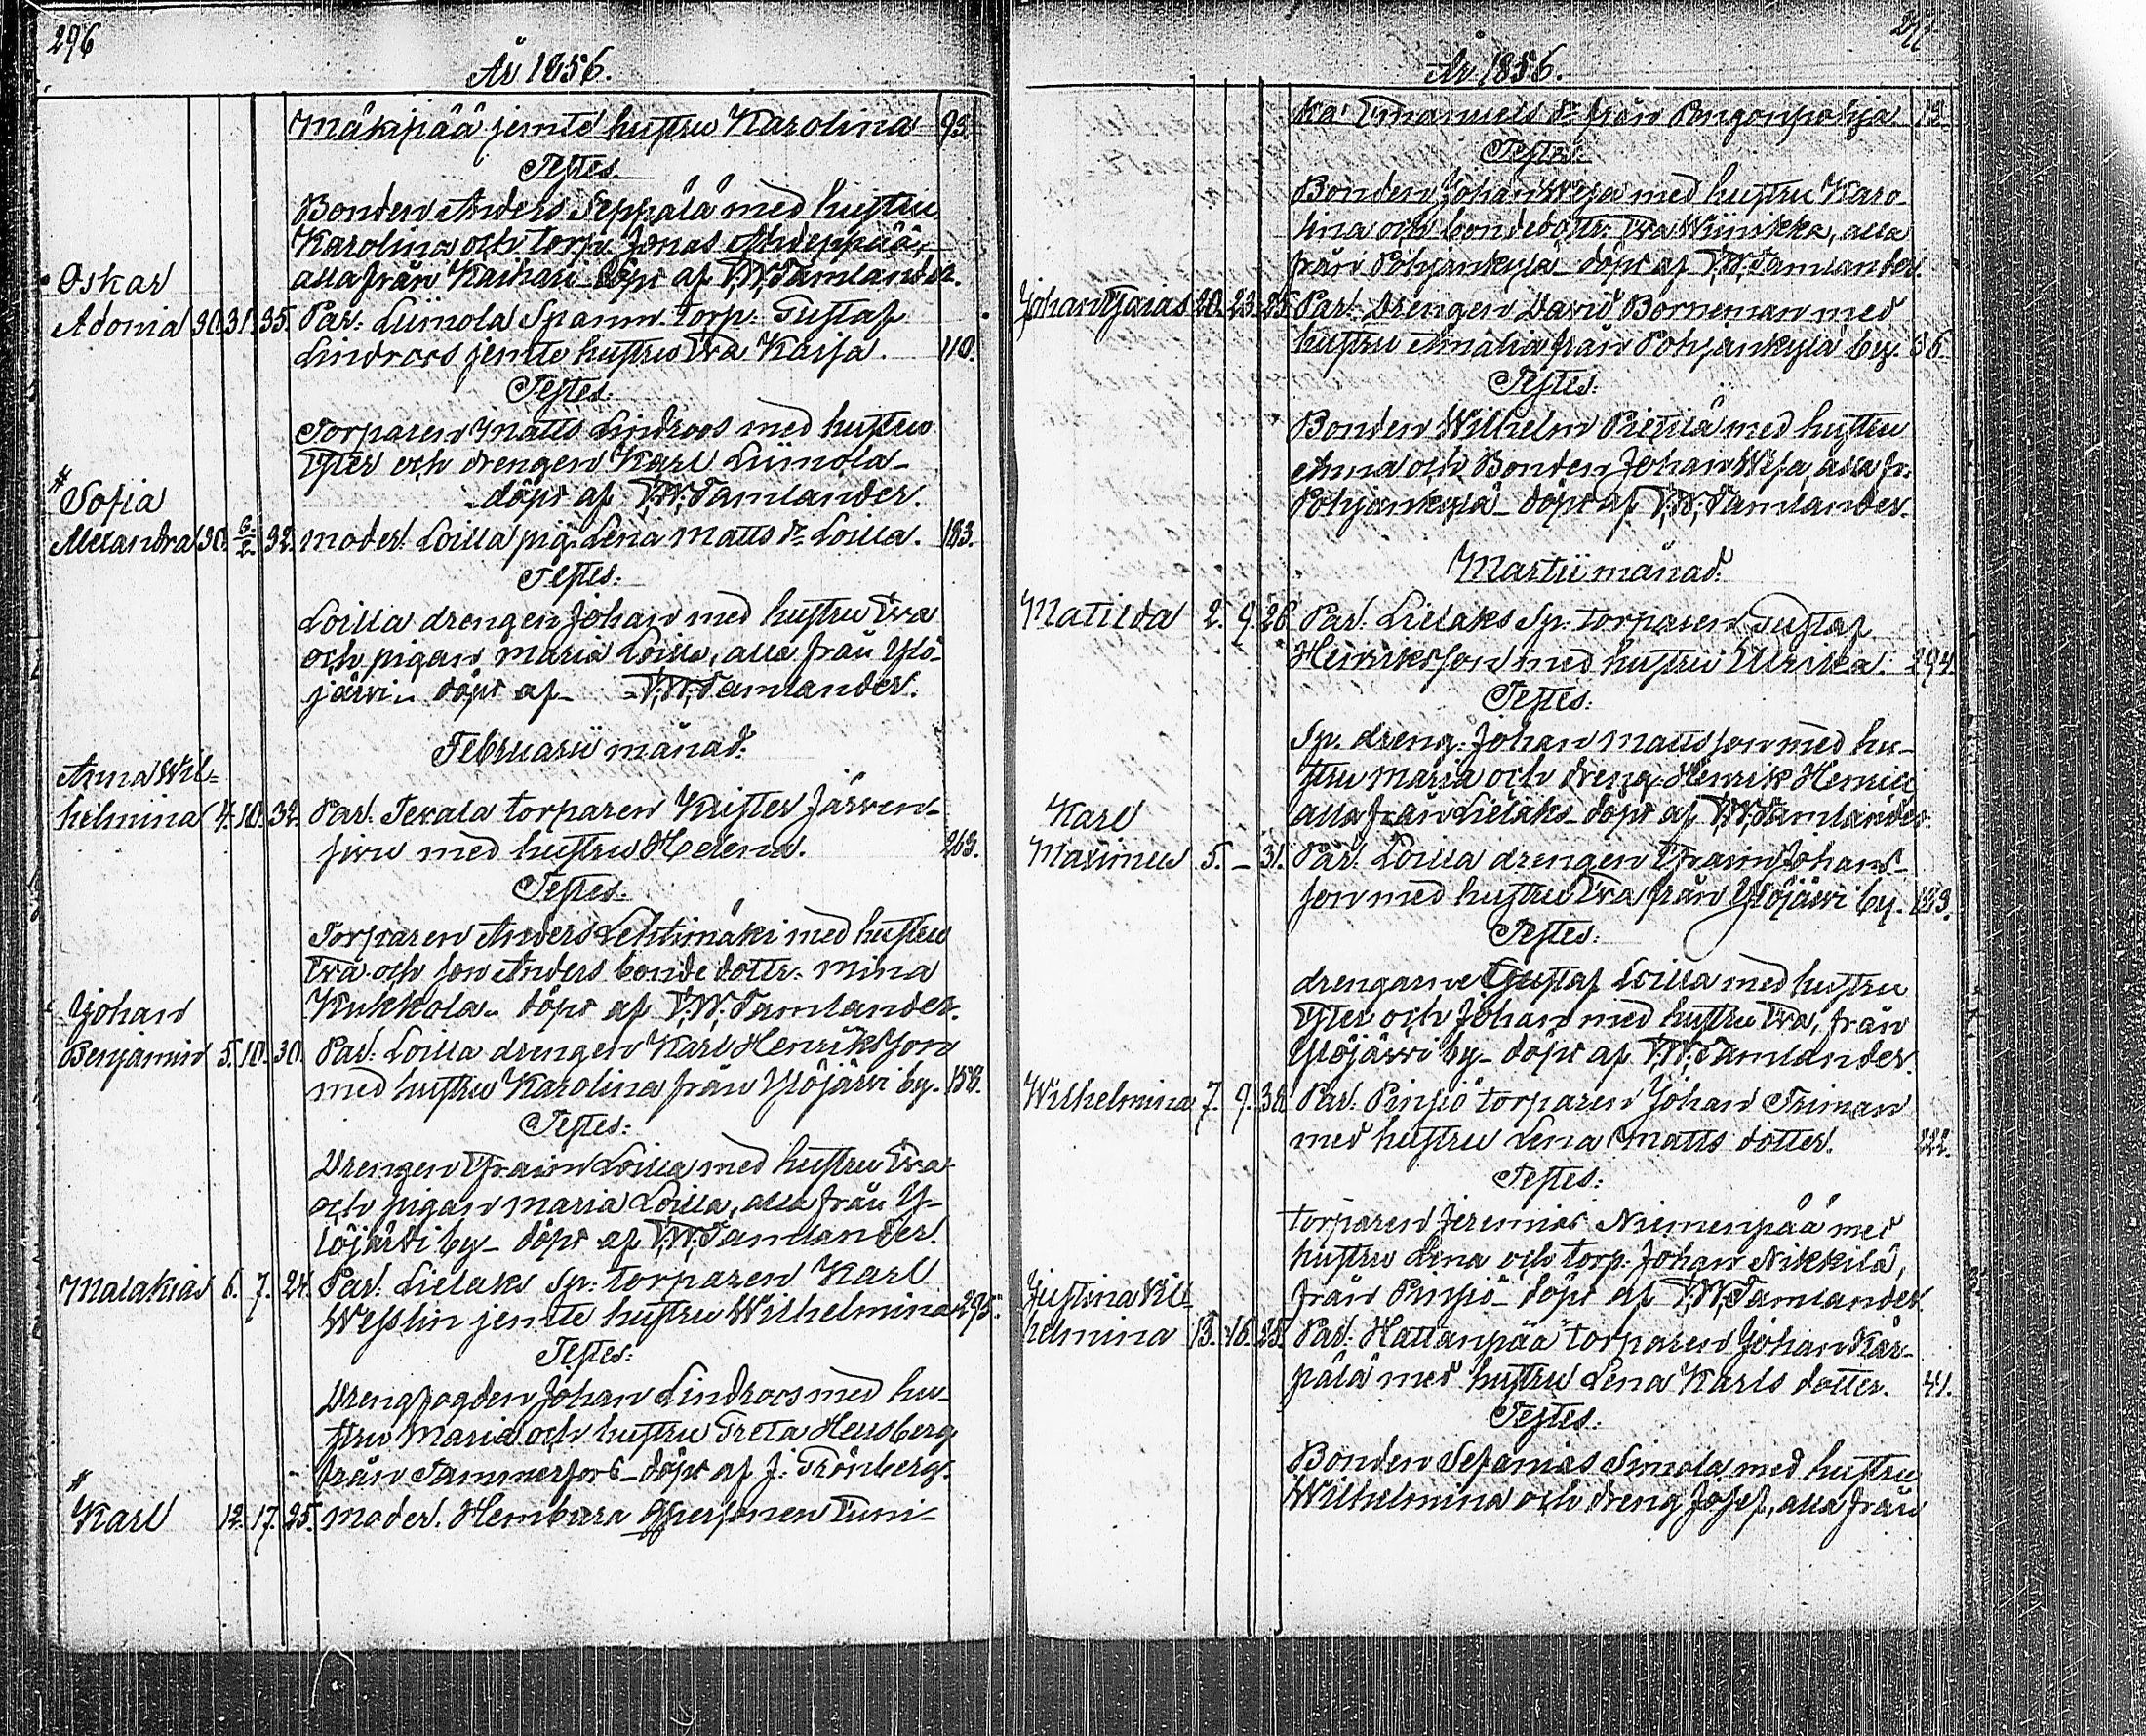 296
År 1856.
Mäkipää jemte hustru Karolina 95.
Testes.
Bonden Anders Seppälä med hustru
Karolina och torp. Jonas
alla från Kaihari döpt af T.W. Tamlander.
Oskar
Adonia 30. 31. 35. Par. Liinola Spanm. torp. Gustaf
Lindroos jemte hustru Eva Kaisa. 110.
Testes.
Torparen Matts Lindroos med hustru
Ester och drengen Karl Liinola
döpt af T.W. Tamlander.
Sofia
Alexandra 30. 6/2. 32. moder. Loilla pig. Lena Matts dr Loilla. 183.
Testes:
Loilla drengen Johan med hustru Eva
och pigan Maria Loilla, alla från Ylö-
järvi döpt af T.W. Tamlander.
Februarii månad.
Anna Wil-
helmina 4. 10. 32. Par. Terala torparen Krister Järven-
sivu med hustru Helena. 263.
Testes.
Torparen Anders Lehtimäki med hustru
Eva och son Anders bonde dottr. Mina
Kukkola döpt af T.W. Tamlander.
Johan
Benjamin 5. 10. 30. Par. Loilla drengen Karl Henriksson
med hustru Karolina från Ylöjärvi by. 158.
Testes:
Drengen Efraim Loilla med hustru Eva
och pigan Maria Loilla, alla från Y-
löjärvi by döpt af T.W. Tamlander.
Malakias 6. 7. 24. Par. Lielaks Sp. torparen Karl
Wesslin jemte hustru Wilhelmina 295.
Testes:
Drengfogden Johan Lindroos med hu-
stru Maria och hustru Greta Hellsberg
från Tammerfors döpt af J. Grönberg.
Karl 12. 17. 25. moder. Hembära Qspersonen Euni-
År 1856.
ka Emanuels dr från Pengonpohja 12
Testes:
Bonden Johan Wesa med hustru Karo-
lina och bondedottr. Eva Wiinikka, alla
från Pohjankylä döpt af T.W. Tamlander.
Johan Esaias 20. 23. 25. Par. Drengen David Borneman med
hustru Amalia från Pohjankylä by. 36
Testes:
Bonden Wilhelm Pietilä med hustru
Anna och Bonden Johan Wesa, alla fr.
Pohjankylä döpt af T.W. Tamlander.
Martii månad.
Matilda 2. 9. 26 Par. Lielaks Sp. torparen Gustaf
Henriksson med hustru Ulrika. 294.
Testes:
Sp. dreng. Johan Mattsson med hu-
stru Maria och dreng Henrik Henrici
alla från Lielaks döpt af T.W. Tamlander.
Karl
Maximus 5. – 31. Par. Loilla drengen Efraim Johans-
son med hustru Eva från Ylöjärvi by. 183.
Testes:
drengarne Gustaf Loilla med hustru
Ester och Johan med hustru Eva, från
Ylöjärvi by döpt af T.W. Tamlander.
Wilhelmina 7. 9. 38 Par. Pinsiö torparen Johan Friman
med hustru Lena Matts dotter. 222.
Testes:
torparen Jeremias Niemenpää med
hustru Lena och torp. Johan Nikkilä,
från Pinsiö döpt af T.W. Tamlander.
Justina Wil-
helmina 13. 16. 25. Par. Hattanpää torparen Johan Kär-
pälä med hustru Lena Karls dotter. 41.
Testes:
Bonden Sefanias Simola med hustru
Wilhelmina och dreng Josef, alla från